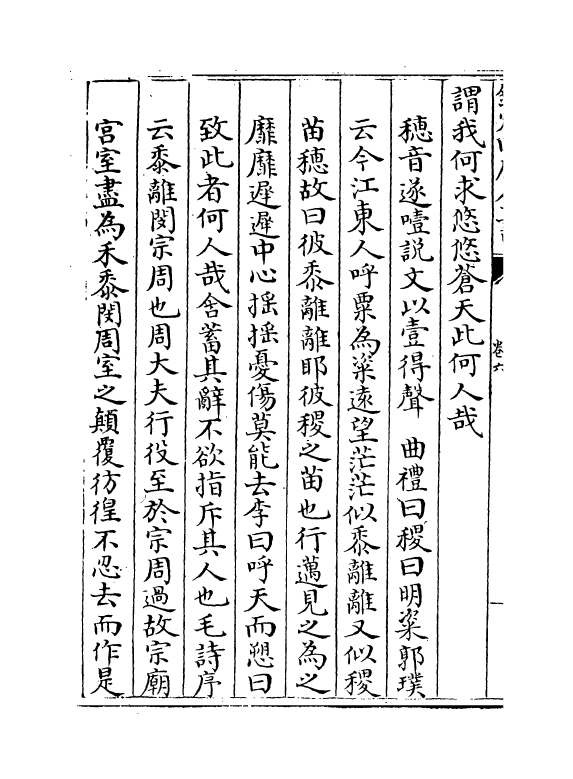 謂我何求悠悠蒼天此何人哉
穗音遂噎説文以壹得聲　曲禮曰稷曰明粢郭璞
云今江東人呼粟為粢遠望茫茫似黍離離又似稷
苗穗故曰彼黍離離耶彼稷之苗也行邁見之為之
靡靡遲遲中心揺揺憂傷莫能去李曰呼天而愬曰
致此者何人哉含蓄其辭不欲指斥其人也毛詩序
云黍離閔宗周也周大夫行役至於宗周過故宗廟
宫室盡為禾黍閔周室之顛覆彷徨不忍去而作是
卷六